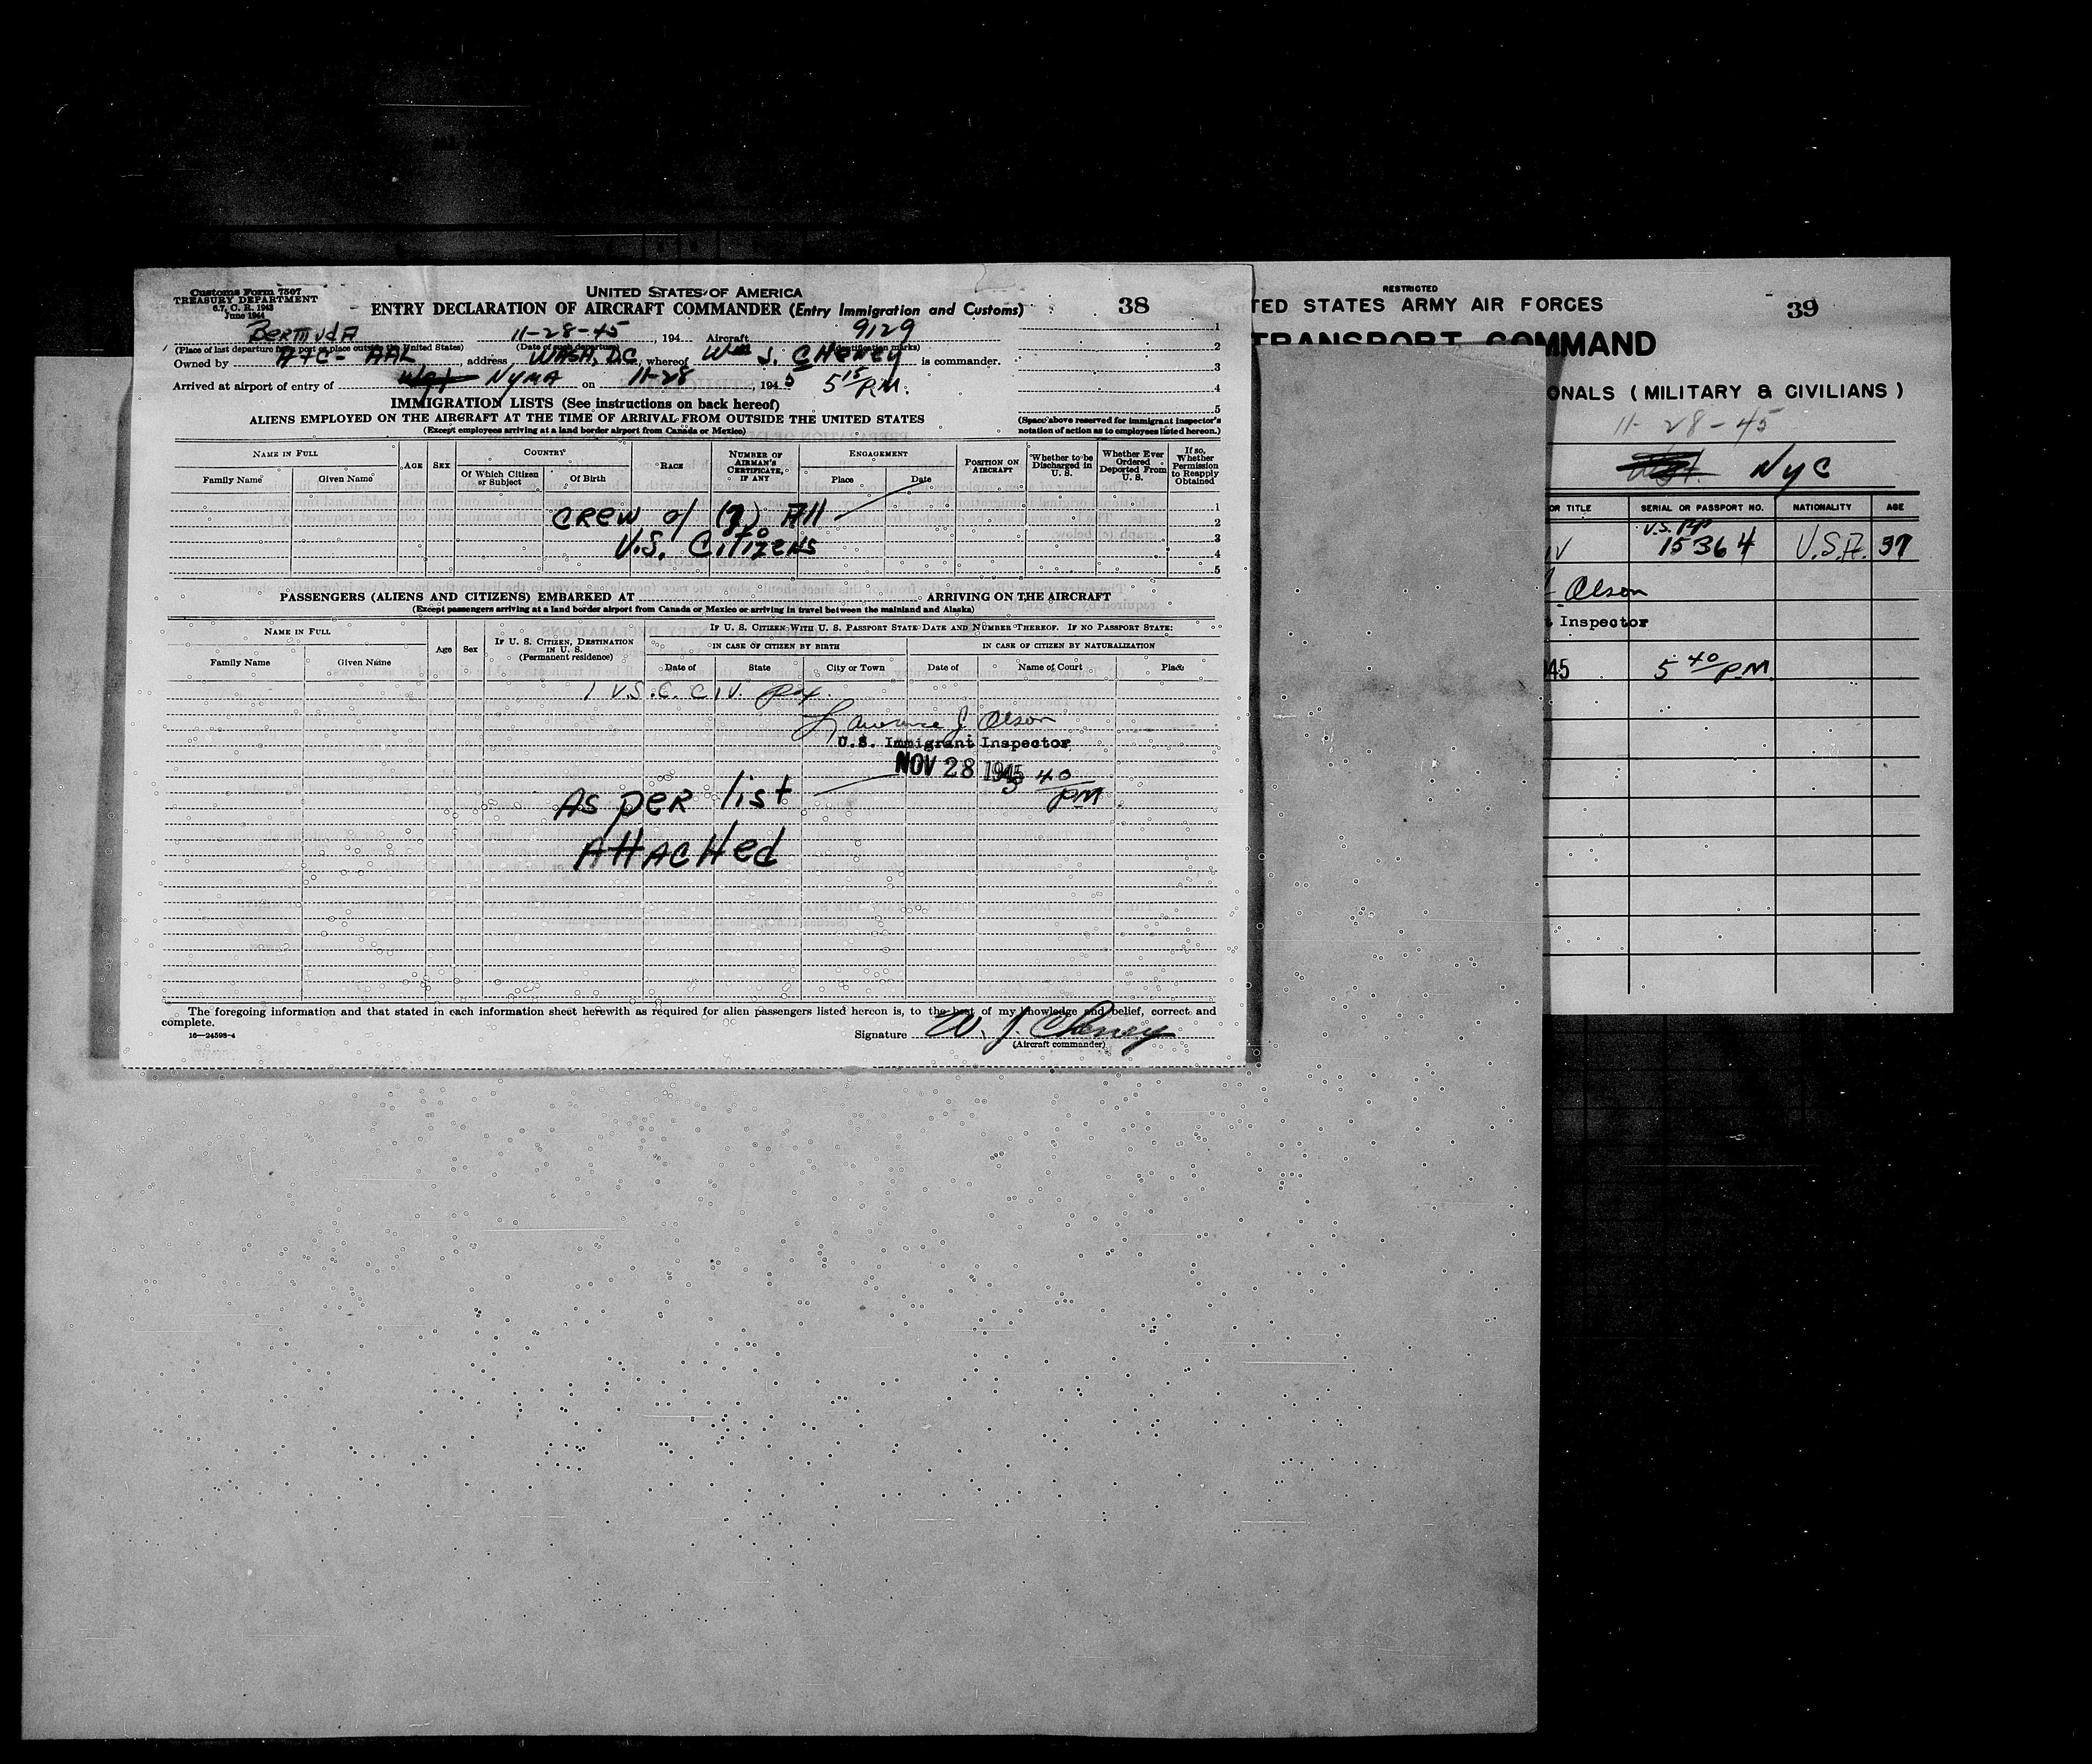 Customs Form 7507
TREASURY DEPARTMENT
6.7, C. R. 1943
June 1944
UNITED STATES OF AMERICA
ENTRY DECLARATION OF AIRCRAFT COMMANDER (Entry Immigration and Customs)
38
BERMUdA 11-28-45, 194 Aircraft 9129
(Place of last departure from port or place outside the United States) (Date of such departure) (Identification marks)
Owned by ATC - AAL address WASH, D.C. whereof Wm J. CHENEY is commander.
Arrived at airport of entry of NYMA on 11-28, 1945 5 15 P.M.
1
2
3
4
5
IMMIGRATION LISTS (See instructions on back hereof)
ALIENS EMPLOYED ON THE AIRCRAFT AT THE TIME OF ARRIVAL FROM OUTSIDE THE UNITED STATES
(Except employees arriving at a land border airport from Canada or Mexico)
(Space above reserved for immigrant inspector's
notation of action as to employees listed hereon.)
NAME IN FULL
Family Name Given Name
AGE
SEX
COUNTRY
Of Which Citizen or Subject
Of Birth
RACE
NUMBER OF AIRMAN'S CERTIFICATE, IF ANY
ENGAGEMENT
Place Date
POSITION ON AIRCRAFT
Whether to be Discharged in U. S.
Whether Ever Ordered Deported From U. S.
If so, Whether Permission to Reapply Obtained
CREW of (7) All
U.S. CITIZENS
1
2
3
4
5
PASSENGERS (ALIENS AND CITIZENS) EMBARKED AT ARRIVING ON THE AIRCRAFT
(Except passengers arriving at a land border airport from Canada or Mexico or arriving in travel between the mainland and Alaska)
NAME IN FULL
Family Name Given Name
Age
Sex
IF U. S. CITIZEN, DESTINATION IN U. S.
(Permanent residence)
IF U. S. CITIZEN WITH U. S. PASSPORT STATE DATE AND NUMBER THEREOF. IF NO PASSPORT STATE:
IN CASE OF CITIZEN BY BIRTH
IN CASE OF CITIZEN BY NATURALIZATION
Date of State City or Town Date of Name of Court Place
1 U.S.C. CIV. Pax.
Lawrence J. Olson
U.S. Immigrant Inspector
NOV 28 1945 5 40 PM
AS PER list
AttACHed
The foregoing information and that stated in each information sheet herewith as required for alien passengers listed hereon is, to the best of my knowledge and belief, correct and
complete.
16—24598-4
Signature W. J. Cheney
(Aircraft commander)
RESTRICTED
TED STATES ARMY AIR FORCES
39
TRANSPORT COMMAND
ONALS (MILITARY & CIVILIANS)
11-28-45
NYC
OR TITLE SERIAL OR PASSPORT NO. NATIONALITY AGE
IV U.S. PP 15364 U.S.A. 37
Olson
Inspector
945 5 40 PM